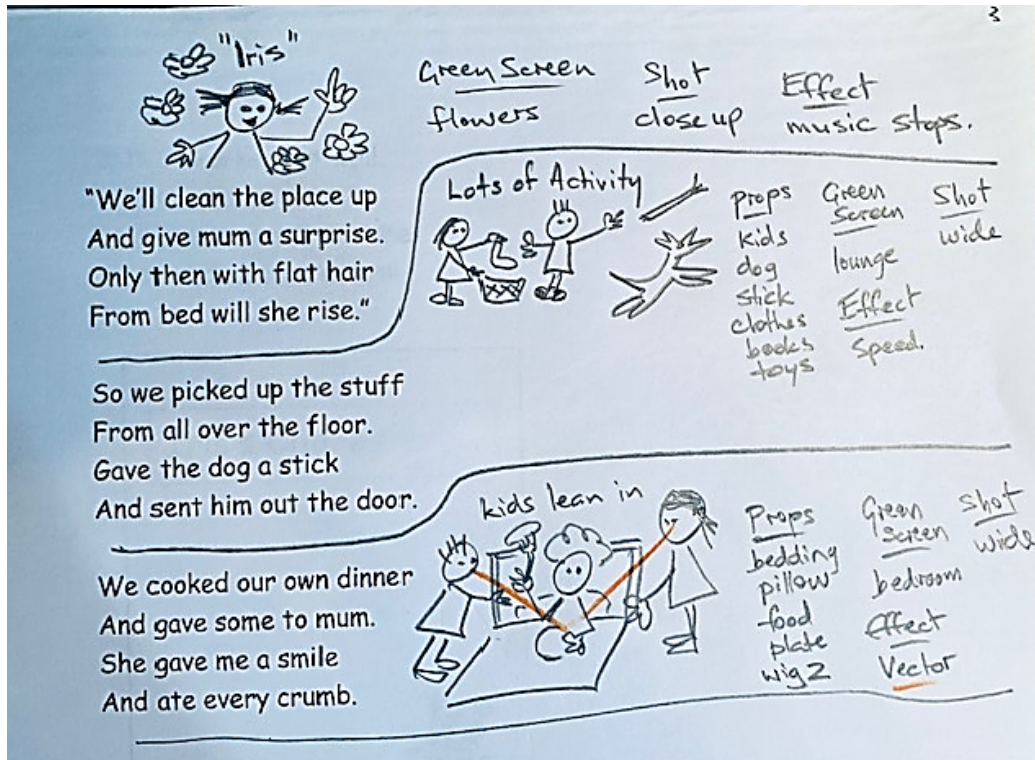 3
"Iris"
Green Screen
flowers
Shot
close up
Effect
music stops.
"We'll clean the place up
And give mum a surprise.
Only then with flat hair
From bed will she rise."
Lots of Activity
Props
kids
dog
stick
clothes
books
toys
Green
Screen
lounge
Effect
Speed.
Shot
wide
So we picked up the stuff
From all over the floor.
Gave the dog a stick
And sent him out the door.
kids lean in
Props
bedding
pillow
food
plate
wig 2
Green
Screen
bedroom
Effect
Vector
Shot
wide
We cooked our own dinner
And gave some to mum.
She gave me a smile
And ate every crumb.